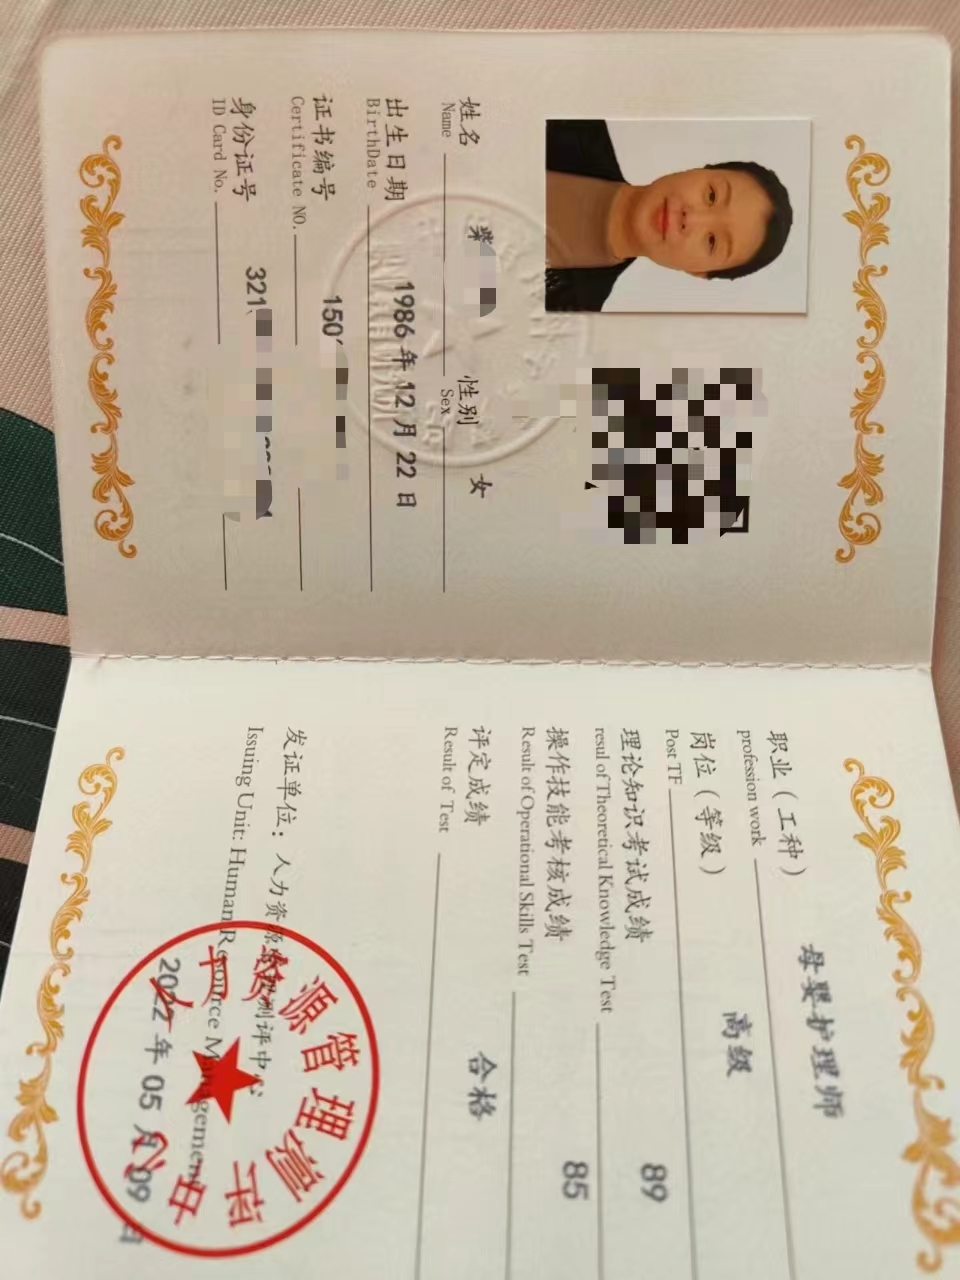 姓名 柴 性别 女
Name Sex
出生日期 1986 年 12 月 22 日
BirthDate
证书编号 150
Certificate NO.
身份证号 321
ID Card No.
职业（工种） 母婴护理师
profession work
岗位（等级） 高级
Post TF
理论知识考试成绩 89
resul of Theoretical Knowledge Test
操作技能考核成绩 85
Result of Operational Skills Test
评定成绩 合格
Result of Test
发证单位：人力资源管理测评中心
Issuing Unit: Human Resource Management
2022 年 05 月 09 日
人力资源管理测评中心